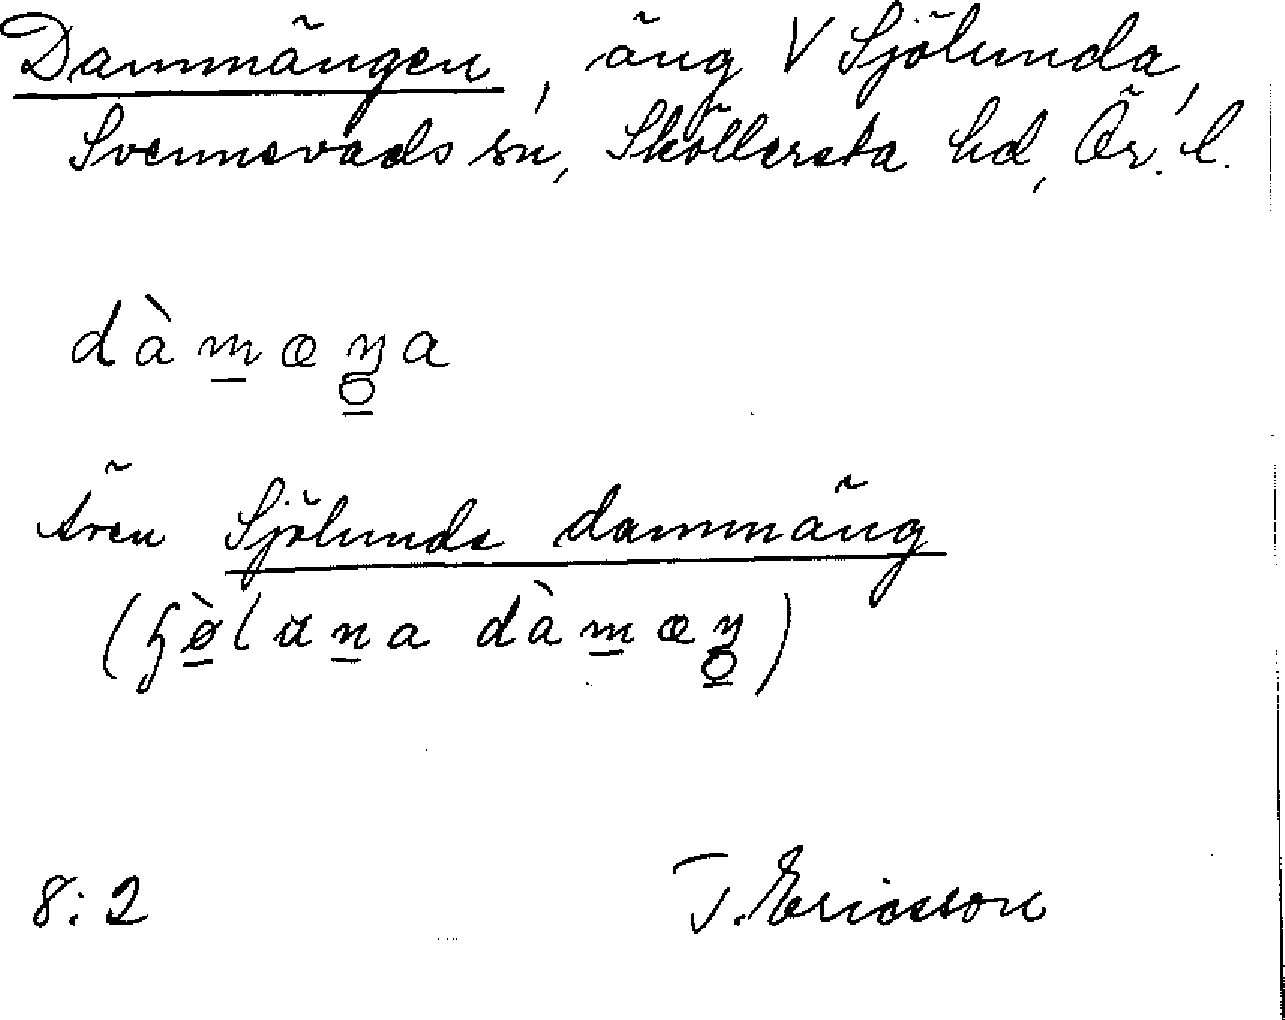 Dammängen, äng V Sjölunda,
Svennevads sn, Sköllersta hd, Ör. l.
dàm̲æŋ̲a
även Sjölunda dammäng
(ɧø̲̀lɑn̲a dàm̲æŋ̲)
8:2 T. Ericsson